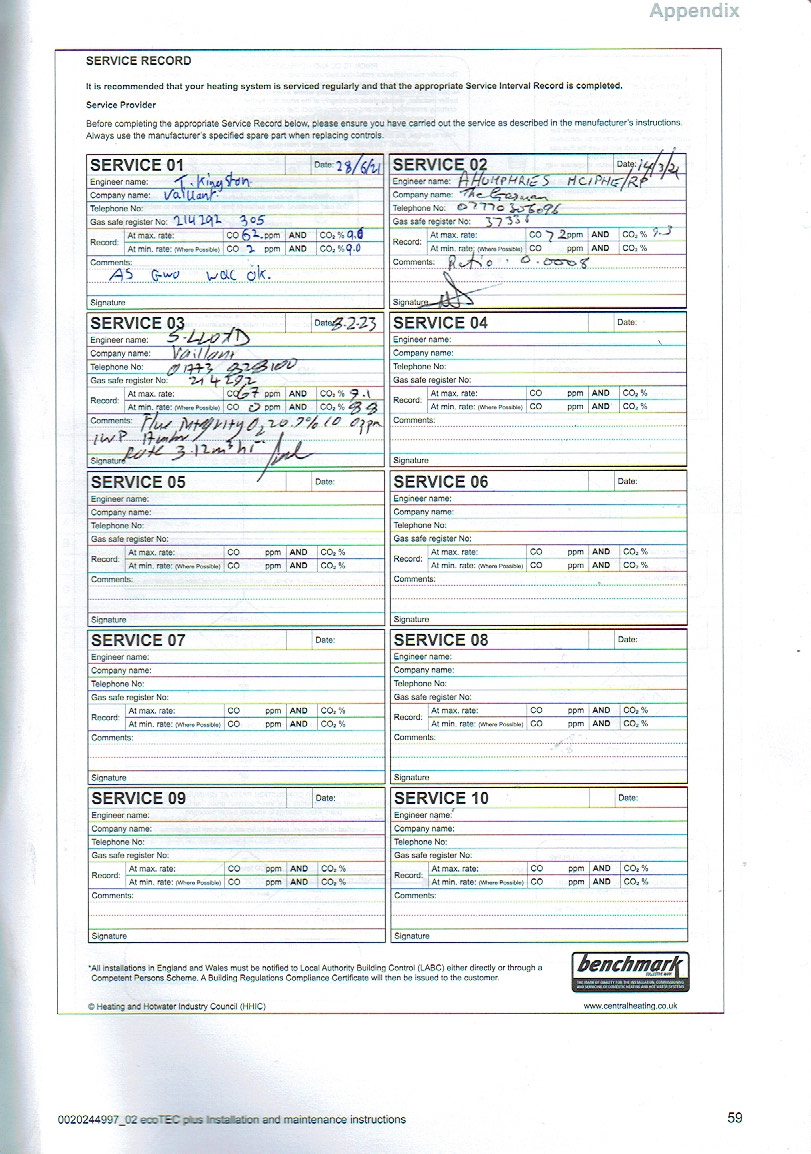 Appendix
SERVICE RECORD
It is recommended that your heating system is serviced regularly and that the appropriate Service Interval Record is completed.
Service Provider
Before completing the appropriate Service Record below, please ensure you have carried out the service as described in the manufacturer's instructions.
Always use the manufacturer's specified spare part when replacing controls.
SERVICE 01 Date: 28/6/21
Engineer name: T. Kingston
Company name: Vaillant.
Telephone No:
Gas safe register No: 214292 305
Record: At max. rate: CO 62 ppm AND CO₂ % 9.6
At min. rate: (Where Possible) CO 2 ppm AND CO₂ % 9.0
Comments:
AS GWO WDC OK.
Signature
SERVICE 02 Date: 14/3/21
Engineer name: A HUMPHRIES MCIPHE/RP
Company name: The Gasman
Telephone No: 07770
Gas safe register No:
Record: At max. rate: CO 72 ppm AND CO₂ % 9.3
At min. rate: (Where Possible) CO ppm AND CO₂ %
Comments: Ratio : 0.0008
Signature
SERVICE 03 Date: 3-2-23
Engineer name: S. LLOYD
Company name: Vaillant
Telephone No: 01773
Gas safe register No: 214292
Record: At max. rate: CO 67 ppm AND CO₂ % 9.1
At min. rate: (Where Possible) CO 0 ppm AND CO₂ % 8.8
Comments: Flue Integrity O₂ 20.9% CO 0ppm
IWP 17mbar
Signature Rate 3.12m³ hr
SERVICE 04 Date:
Engineer name:
Company name:
Telephone No:
Gas safe register No:
Record: At max. rate: CO ppm AND CO₂ %
At min. rate: (Where Possible) CO ppm AND CO₂ %
Comments:
Signature
SERVICE 05 Date:
Engineer name:
Company name:
Telephone No:
Gas safe register No:
Record: At max. rate: CO ppm AND CO₂ %
At min. rate: (Where Possible) CO ppm AND CO₂ %
Comments:
Signature
SERVICE 06 Date:
Engineer name:
Company name:
Telephone No:
Gas safe register No:
Record: At max. rate: CO ppm AND CO₂ %
At min. rate: (Where Possible) CO ppm AND CO₂ %
Comments:
Signature
SERVICE 07 Date:
Engineer name:
Company name:
Telephone No:
Gas safe register No:
Record: At max. rate: CO ppm AND CO₂ %
At min. rate: (Where Possible) CO ppm AND CO₂ %
Comments:
Signature
SERVICE 08 Date:
Engineer name:
Company name:
Telephone No:
Gas safe register No:
Record: At max. rate: CO ppm AND CO₂ %
At min. rate: (Where Possible) CO ppm AND CO₂ %
Comments:
Signature
SERVICE 09 Date:
Engineer name:
Company name:
Telephone No:
Gas safe register No:
Record: At max. rate: CO ppm AND CO₂ %
At min. rate: (Where Possible) CO ppm AND CO₂ %
Comments:
Signature
SERVICE 10 Date:
Engineer name:
Company name:
Telephone No:
Gas safe register No:
Record: At max. rate: CO ppm AND CO₂ %
At min. rate: (Where Possible) CO ppm AND CO₂ %
Comments:
Signature
*All installations in England and Wales must be notified to Local Authority Building Control (LABC) either directly or through a
Competent Persons Scheme. A Building Regulations Compliance Certificate will then be issued to the customer.
benchmark
THE MARK OF QUALITY FOR THE INSTALLATION, COMMISSIONING
AND SERVICING OF DOMESTIC HEATING AND HOT WATER SYSTEMS
© Heating and Hotwater Industry Council (HHIC)
www.centralheating.co.uk
0020244997_02 ecoTEC plus Installation and maintenance instructions
59